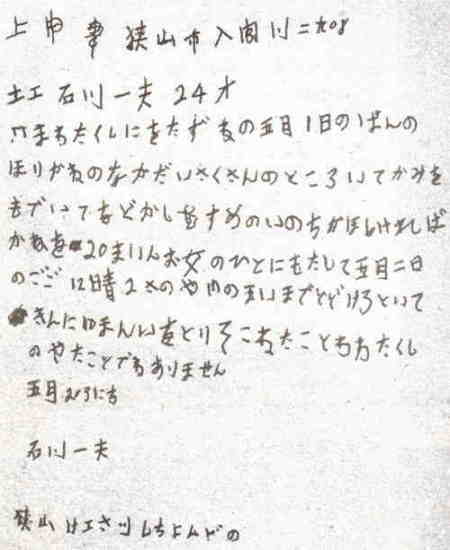 上申書 狭山市入間川二九08
土工 石川一夫 24才
たくしにをたずねの五月1日のばんの
ほりかねのなかださくさんのところいてかみを
もていて かしむすめのいのちがほしけましば
かねを20まいんお女のひとにもたして五月二日
のごご12時 さのやのまいまでとどけろといて
きんにゆまんいをとりそこねたことわわたくし
のやたことでわありません
五月23にち
石川一夫
狭山けエさツしちよんどの